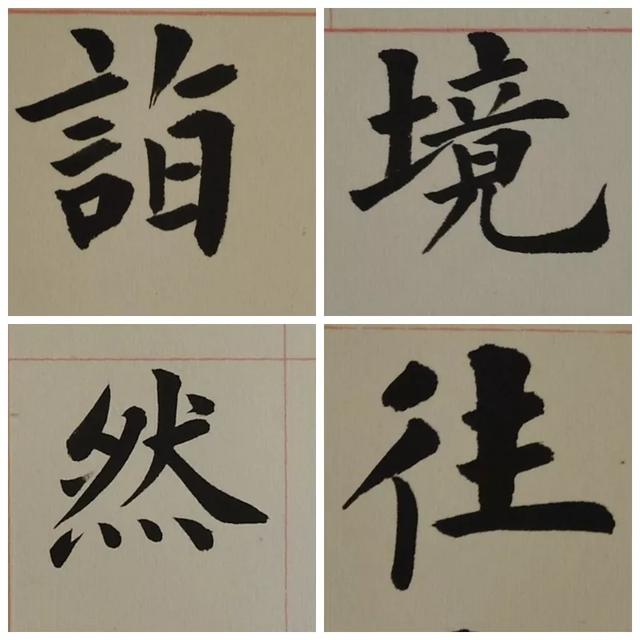 詣境
然往